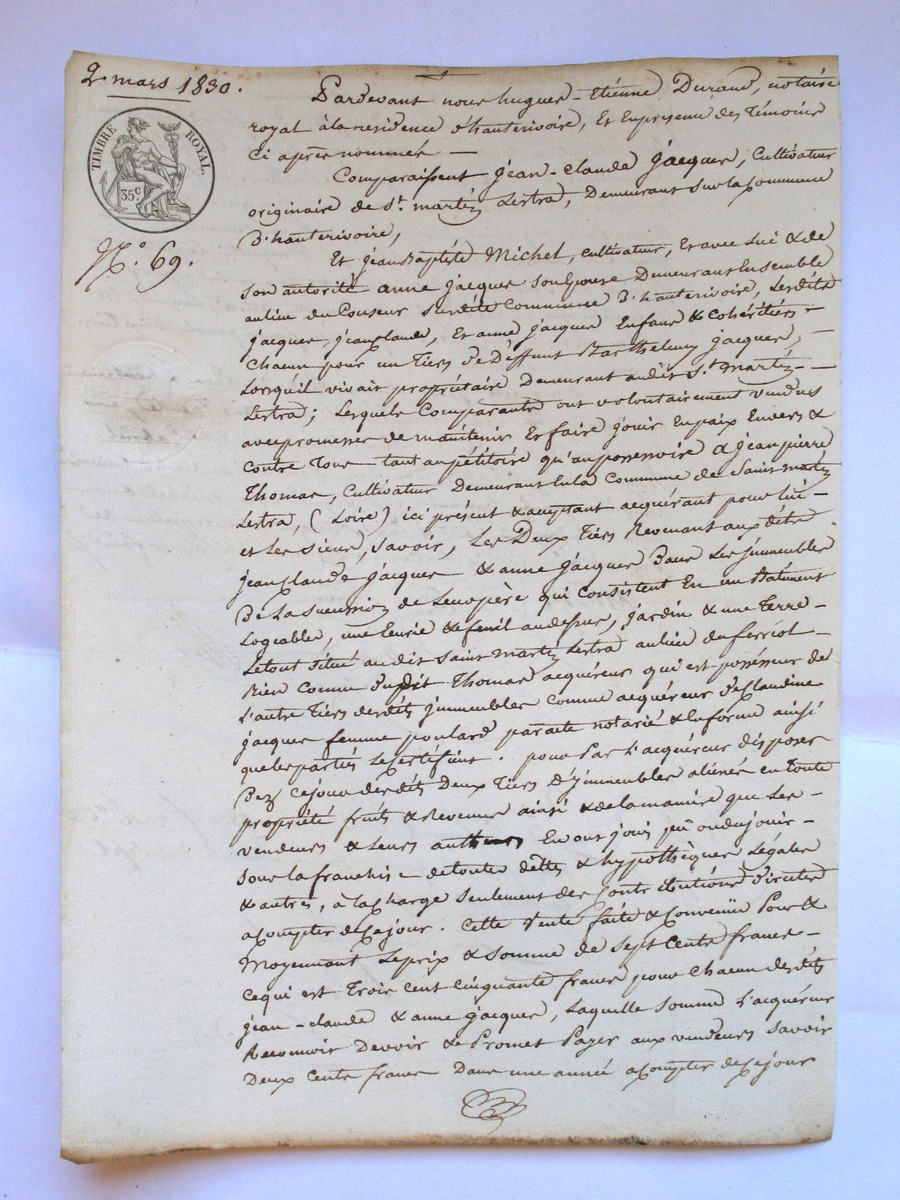 2. mars 1830.
TIMBRE ROYAL.
35 c.
N.° 69.
Pardevant nous hugues-Etienne Durand, notaire
royal à la residence d'hauterivoire, Et En presence des Temoins
Ci après nommés —
Comparaissent jean-claude jacques, Cultivateur
originaire de St. martin Lestra, Demeurant Sur la Commune
D'hauterivoire,
Et jean Baptiste Michel, cultivateur, Et avec lui & de
Son autorité anne jacques Son Epouse Demeurant Ensemble
au lieu du Couseur Susdite Commune D'hauterivoire, Lesdits
jacques, jean claude, Et anne jacques Enfans & cohéritiers
Chacun pour un Tiers de Deffunt Barthelemy jacques,
Lorsqu'il vivait propriétaire Demeurant audit St. martin
Lestra; Lesquels Comparants ont volontairement vendus
avec promesse de maintenir Et faire jouir En paix Envers &
Contre Tous tant au pétitoire qu'au possessoire a jean pierre
Thomas, Cultivateur Demeurant En la Commune de Saint martin
Lestra, (Loire) ici présent & acceptant acquérant pour lui
et Les Siens, Savoir, Les Deux Tiers Revenant aux dits
jean Claude jacques & anne jacques Dans Les jmmeubles
De La Succession de Leur père qui Consistent En un Batiment
Logeable, une Ecurie & fenil au dessus, jardin & une Terre
Le tout Situé au dit Saint martin Lestra au lieu du ferriol
Bien Connu Dudit Thomas acquéreur qui est possesseur de
L'autre Tiers desdits jmmeubles Comme acquéreur de Claudine
jacques femme poulard par acte notarié & En forme ainsi
que les parties Le Certifient. pour Par L'acquéreur disposer
Dez Ce jour desdits Deux Tiers D'jmmeubles aliénés en toute
propriété fruits & Revenus ainsi & de la manière que Les
vendeurs & Leurs autheurs En ont joui pû ou du jouir
Sous la franchise de toutes dettes & hypothèques Légales
& autres, à la Charge Seulement des Contributions Directes
a Compter de Ce jour. Cette Vente faite & Convenüe Pour &
Moyennant Le prix & Somme de Sept Cents francs
Ce qui est Trois Cent Cinquante francs pour Chacun desdits
jean-claude & anne jacques, Laquelle Somme L'acquéreur
Reconnoit Devoir & Promet Payer aux vendeurs Savoir
Deux Cents francs Dans une année a Compter de Ce jour